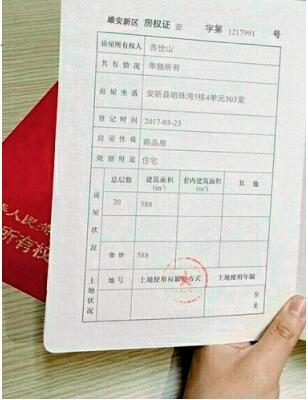 雄安新区 房权证 安 字第 1217991 号
房屋所有权人 苏世山
共有情况 单独所有
房屋坐落 安新县明珠湾5栋4单元303室
登记时间 2017-03-23
房屋性质 商品房
规划用途 住宅
房屋状况 总层数 建筑面积(m²) 套内建筑面积(m²) 其他
20 588
合计 588
土地状况 地号 土地使用权取得方式 土地使用年限
至
止
华人民共
所有权